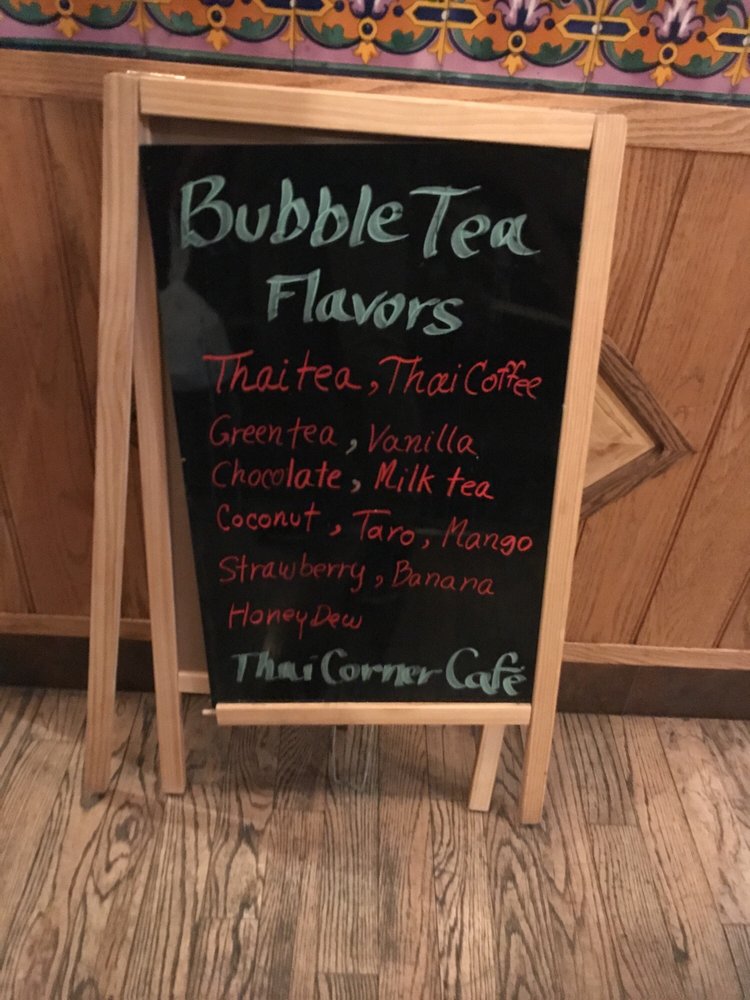 Bubble Tea
Flavors
Thai tea, Thai Coffee
Green tea, Vanilla
Chocolate, Milk tea
Coconut, Taro, Mango
Strawberry, Banana
HoneyDew
Thai Corner Café